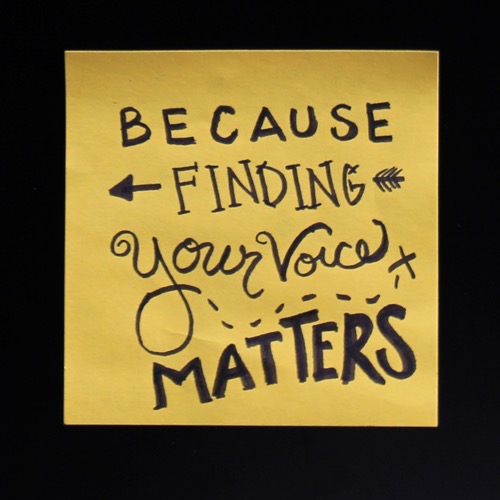 BECAUSE
FINDING
Your Voice
MATTERS